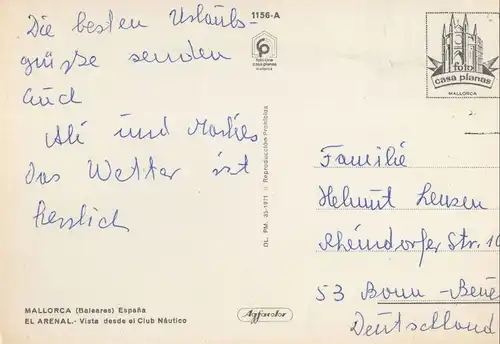 1156-A
Die besten Urlaubs-
grüsse senden
Euch
Ali und
das Wetter ist
herrlich
MALLORCA (Baleares) España
EL ARENAL.- Vista desde el Club Náutico
foto cine
casa planas
mallorca
DL. PM. 85-1971 :: Reproducción Prohibida
Agfacolor
foto
casa planas
MALLORCA
Familie
Helmut Leusen
Rheindorfer Str. 10
53 Bonn-Beue
Deutschland